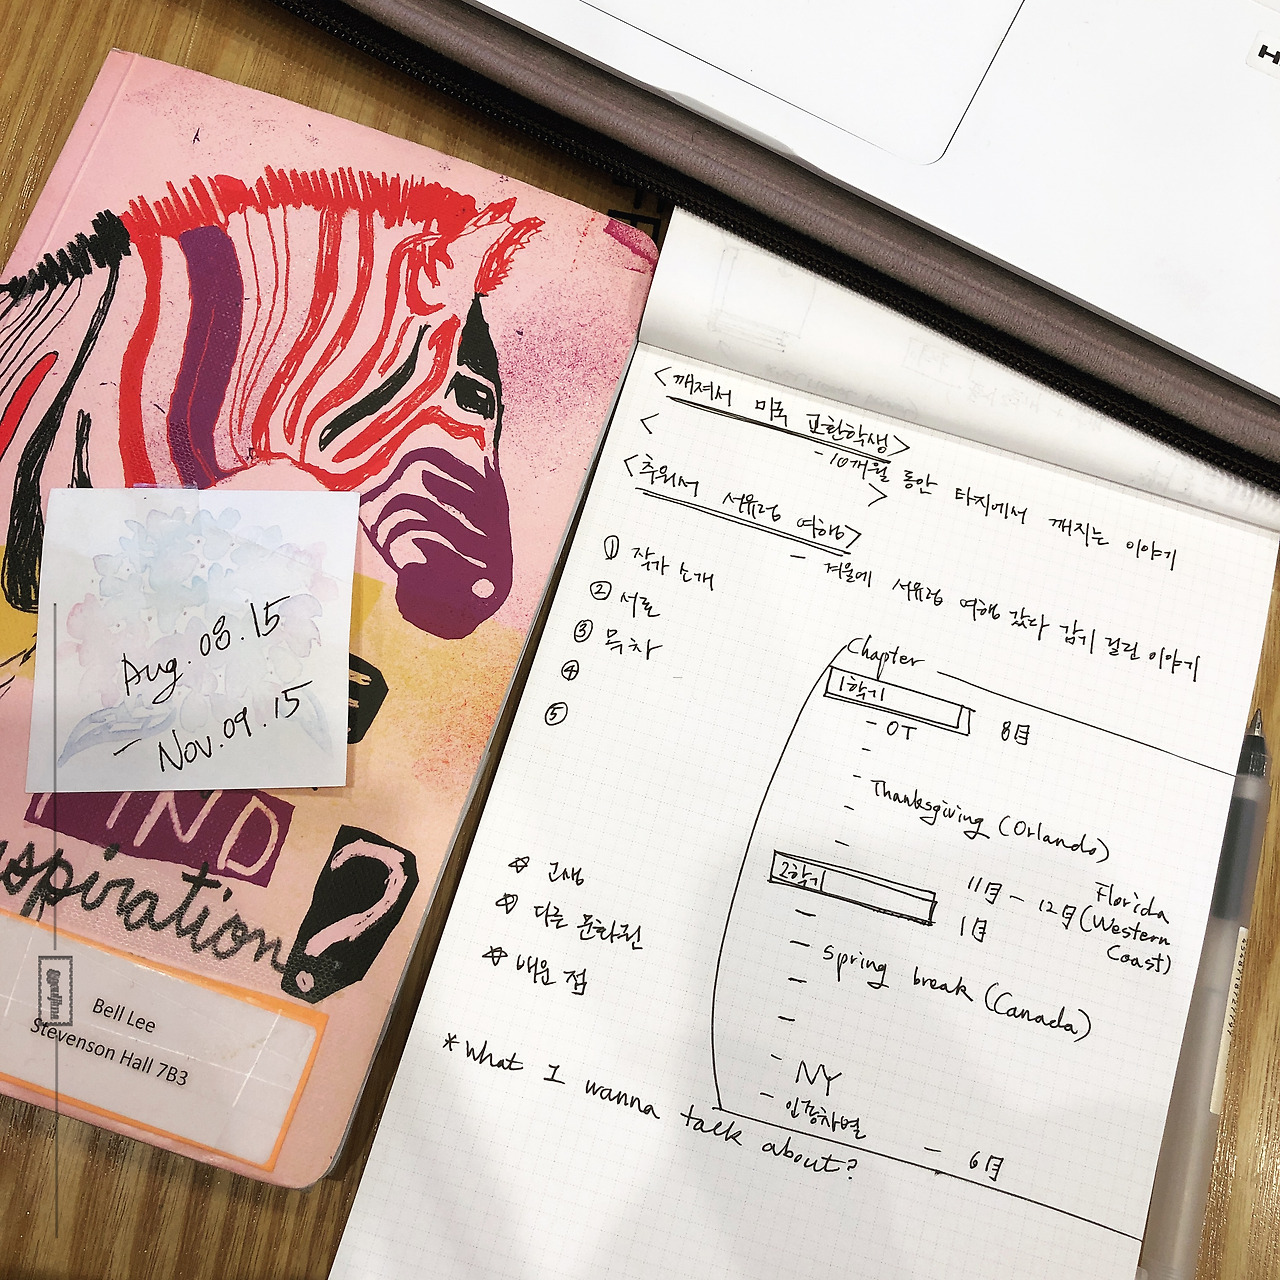 Aug. 08. 15
– Nov. 09. 15
FIND
inspiration
?
Bell Lee
Stevenson Hall 7B3
<깨져서 미국 교환학생>
- 10개월 동안 타지에서 깨지는 이야기
< >
<추워서 서유럽 여행>
- 겨울에 서유럽 여행 갔다 감기 걸린 이야기
① 작가 소개
② 서론
③ 목차
④
⑤
Chapter
1학기
- OT 8月
-
-
- Thanksgiving (Orlando)
-
11月 - 12月 Florida (Western Coast)
2학기 1月
-
- Spring break (Canada)
-
-
- NY
- 인종차별
- 6月
☆ 고생
☆ 다른 문화권
☆ 배운 점
* What I wanna talk about?